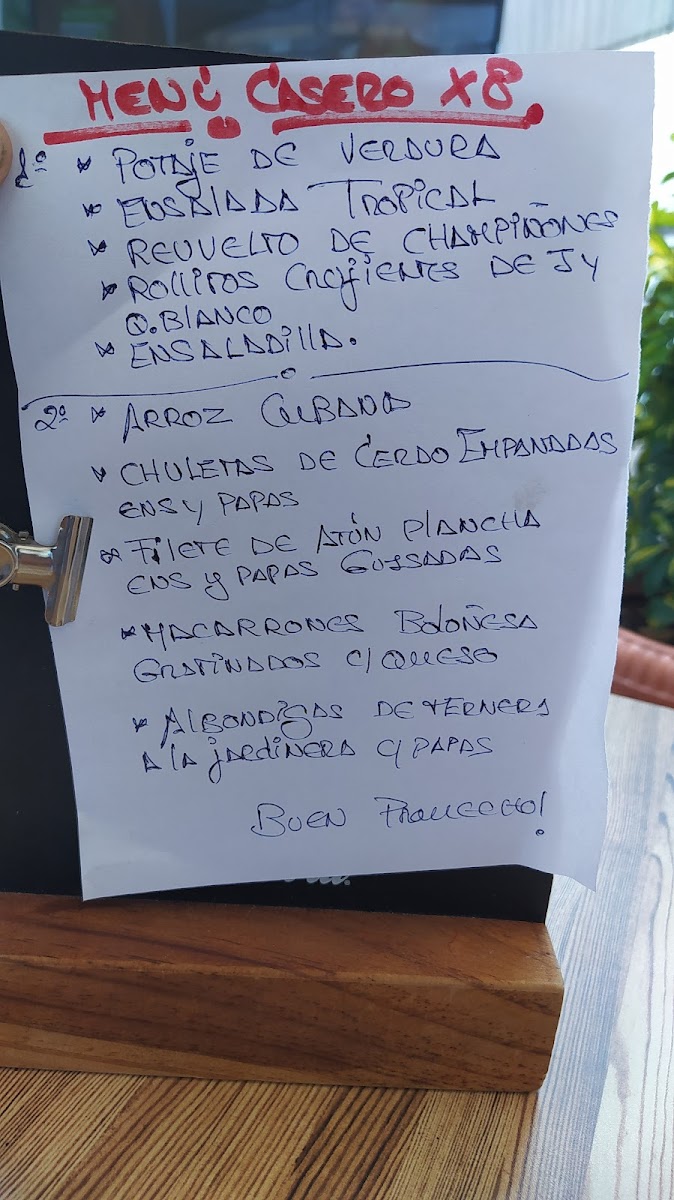 MENÚ CASERO X8
1º * POTAJE DE VERDURA
* ENSALADA TROPICAL
* REUVELTO DE CHAMPIÑONES
* ROLLITOS CRUJIENTES DE J Y
Q. BLANCO
* ENSALADILLA.
2º * ARROZ CUBANA
* CHULETAS DE CERDO EMPANADAS
ENS Y PAPAS
* FILETE DE ATÚN PLANCHA
ENS Y PAPAS GUISADAS
* MACARRONES BOLOÑESA
GRATINADOS C/ QUESO
* ALBONDIGAS DE TERNERA
A LA JARDINERA C/ PAPAS
BUEN PROVECHO!